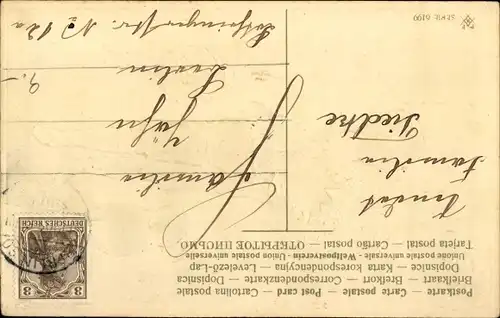 Postkarte — Carte postale — Post card — Cartolina postale
Briefkaart — Brefkort — Correspondenzkarte — Dopisnica
Dopisnice — Karta korespondencyjna — Levelező-Lap
Union postale universelle - Weltpostverein - Union postale universelle
Tarjeta postal — Cartão postal — ОТКРЫТОЕ ПИСЬМО
Familie
Tiedtke
Familie
Jahn
Berlin
Lothringerstr. No 12a
9.-
SERIE 6199
DEUTSCHES REICH
3 3
BERLIN